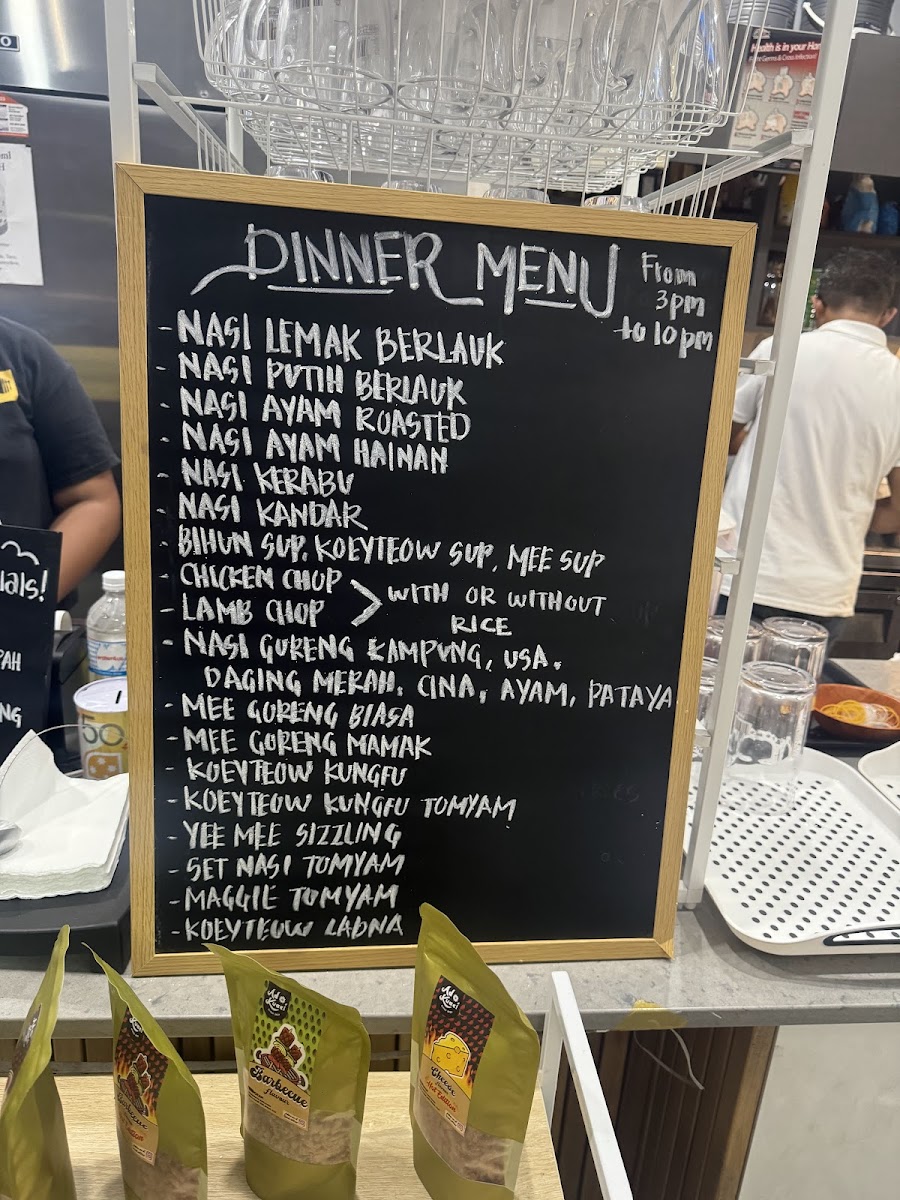 Health is in your Han
DINNER MENU
From
3pm
to 10pm
- NASI LEMAK BERLAUK
- NASI PUTIH BERLAUK
- NASI AYAM ROASTED
- NASI AYAM HAINAN
- NASI KERABU
- NASI KANDAR
- BIHUN SUP, KOEYTEOW SUP, MEE SUP
- CHICKEN CHOP
- LAMB CHOP
> WITH OR WITHOUT
RICE
- NASI GORENG KAMPUNG, USA,
DAGING MERAH, CINA, AYAM, PATAYA
- MEE GORENG BIASA
- MEE GORENG MAMAK
- KOEYTEOW KUNGFU
- KOEYTEOW KUNGFU TOMYAM
- YEE MEE SIZZLING
- SET NASI TOMYAM
- MAGGIE TOMYAM
- KOEYTEOW LADNA
ials!
PAH
NG
50
Barbecue
Flavour
Cheese
Hot Edition